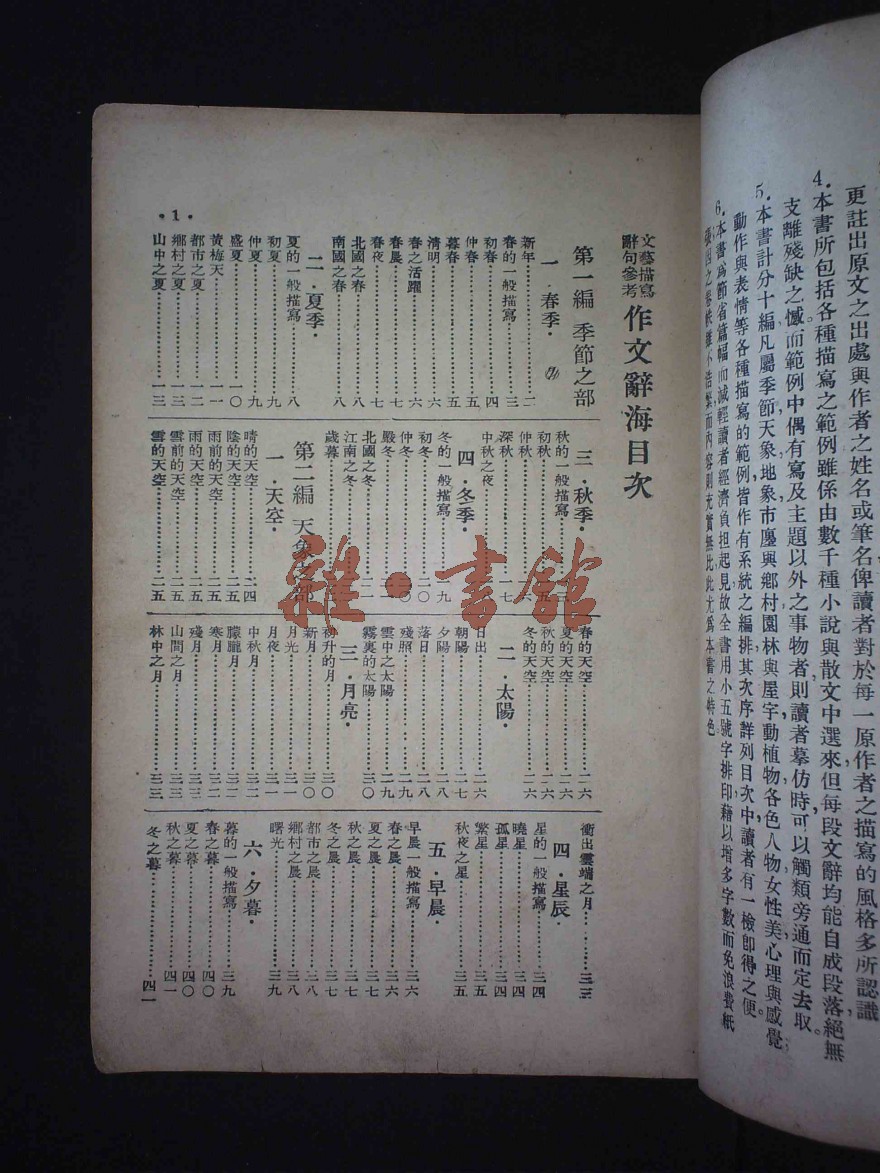 更註出原文之出處與作者之姓名或筆名俾讀者對於每一原作者之描寫的風格多所認識
4.本書所包括各種描寫之範例雖係由數千種小說與散文中選來但每段文辭均能自成段落絕無
支離殘缺之憾而範例中偶有寫及主題以外之事物者則讀者摹仿時可以觸類旁通而定去取。
5.本書計分十編凡屬季節天象地象市廛與鄉村園林與屋宇動植物各色人物女性美心理與感覺,
動作與表情等各種描寫的範例皆作有系統之編排其次序詳列目次中讀者有一檢卽得之便。
6.本書爲節省篇幅而減輕讀者經濟負担起見故全書用小五號字排印藉以增多字數而免浪費紙
張因之卷帙雖不浩繁而內容則充實無比此尤爲本書之特色。
文藝描寫
辭句參考
作文辭海目次
第一編 季節之部
一·春季·
新年……二
春的一般描寫……三
初春……四
仲春……五
暮春……五
清明……六
春之活躍……六
春晨……七
春夜……七
北國之春……八
南國之春……八
二·夏季·
夏的一般描寫……八
初夏……九
仲夏……九
盛夏……一〇
黃梅天……一一
都市之夏……一二
鄉村之夏……一三
山中之夏……一三
三·秋季·
秋的一般描寫……
初秋……五
仲秋……一六
深秋……一七
中秋之夜……
四·冬季·
冬的一般描寫……九
初冬……〇
仲冬……二〇
嚴冬……
北國之冬……二一
江南之冬……
歲暮……
第二編 天象之部
一·天空·
晴的天空……二四
陰的天空……二五
雨前的天空……二五
雨的天空……二五
雪前的天空……二五
雪的天空……二五
春的天空……二六
夏的天空……二六
秋的天空……二六
冬的天空……二六
二·太陽·
日出……二六
朝陽……二七
夕陽……二八
落日……二八
殘照……二九
雲中之太陽……二九
霧裏的太陽……三〇
三·月亮·
初升的月……三〇
新月……三〇
月光……三一
月夜……三一
中秋月……三二
朦朧月……三二
寒月……三二
殘月……三三
山間之月……三三
林中之月……三三
衝出雲端之月……三三
四·星辰·
星的一般描寫……三四
曉星……三四
孤星……三四
繁星……三五
秋夜之星……三五
五·早晨·
早晨一般描寫……三六
春之晨……三六
夏之晨……三七
秋之晨……三七
冬之晨……三七
都市之晨……三八
鄉村之晨……三八
曙光……三九
六·夕暮·
暮的一般描寫……三九
春之暮……四〇
夏之暮……四〇
秋之暮……四一
冬之暮……四一
·1·
雜·書館